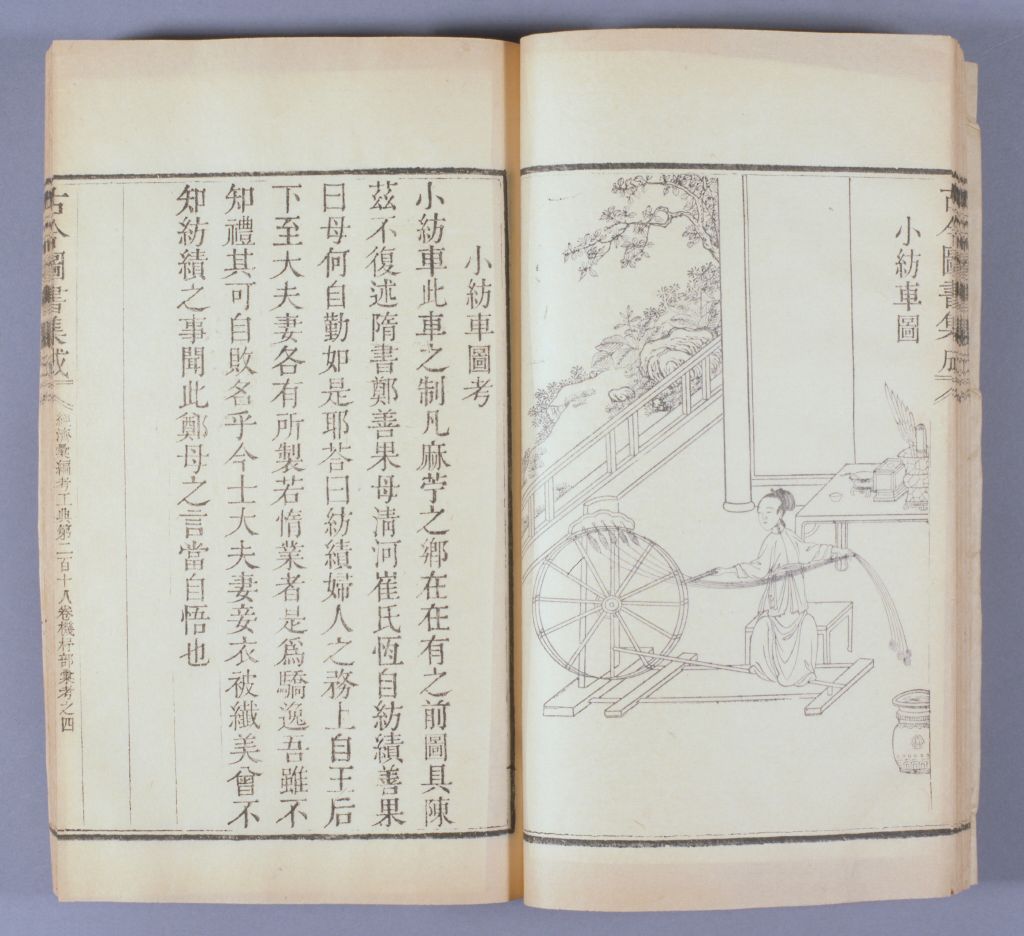 古今圖書集成
小紡車圖
小紡車圖考
小紡車此車之制凡麻苧之鄉在在有之前圖具陳
茲不復述隋書鄭善果母清河崔氏恆自紡績善果
曰母何自勤如是耶荅曰紡績婦人之務上自王后
下至大夫妻各有所製若惰業者是爲驕逸吾雖不
知禮其可自敗名乎今士大夫妻妾衣被纖美曾不
知紡績之事聞此鄭母之言當自悟也
古今圖書集成
經濟彙編考工典第二百十八卷機杼部彙考之四